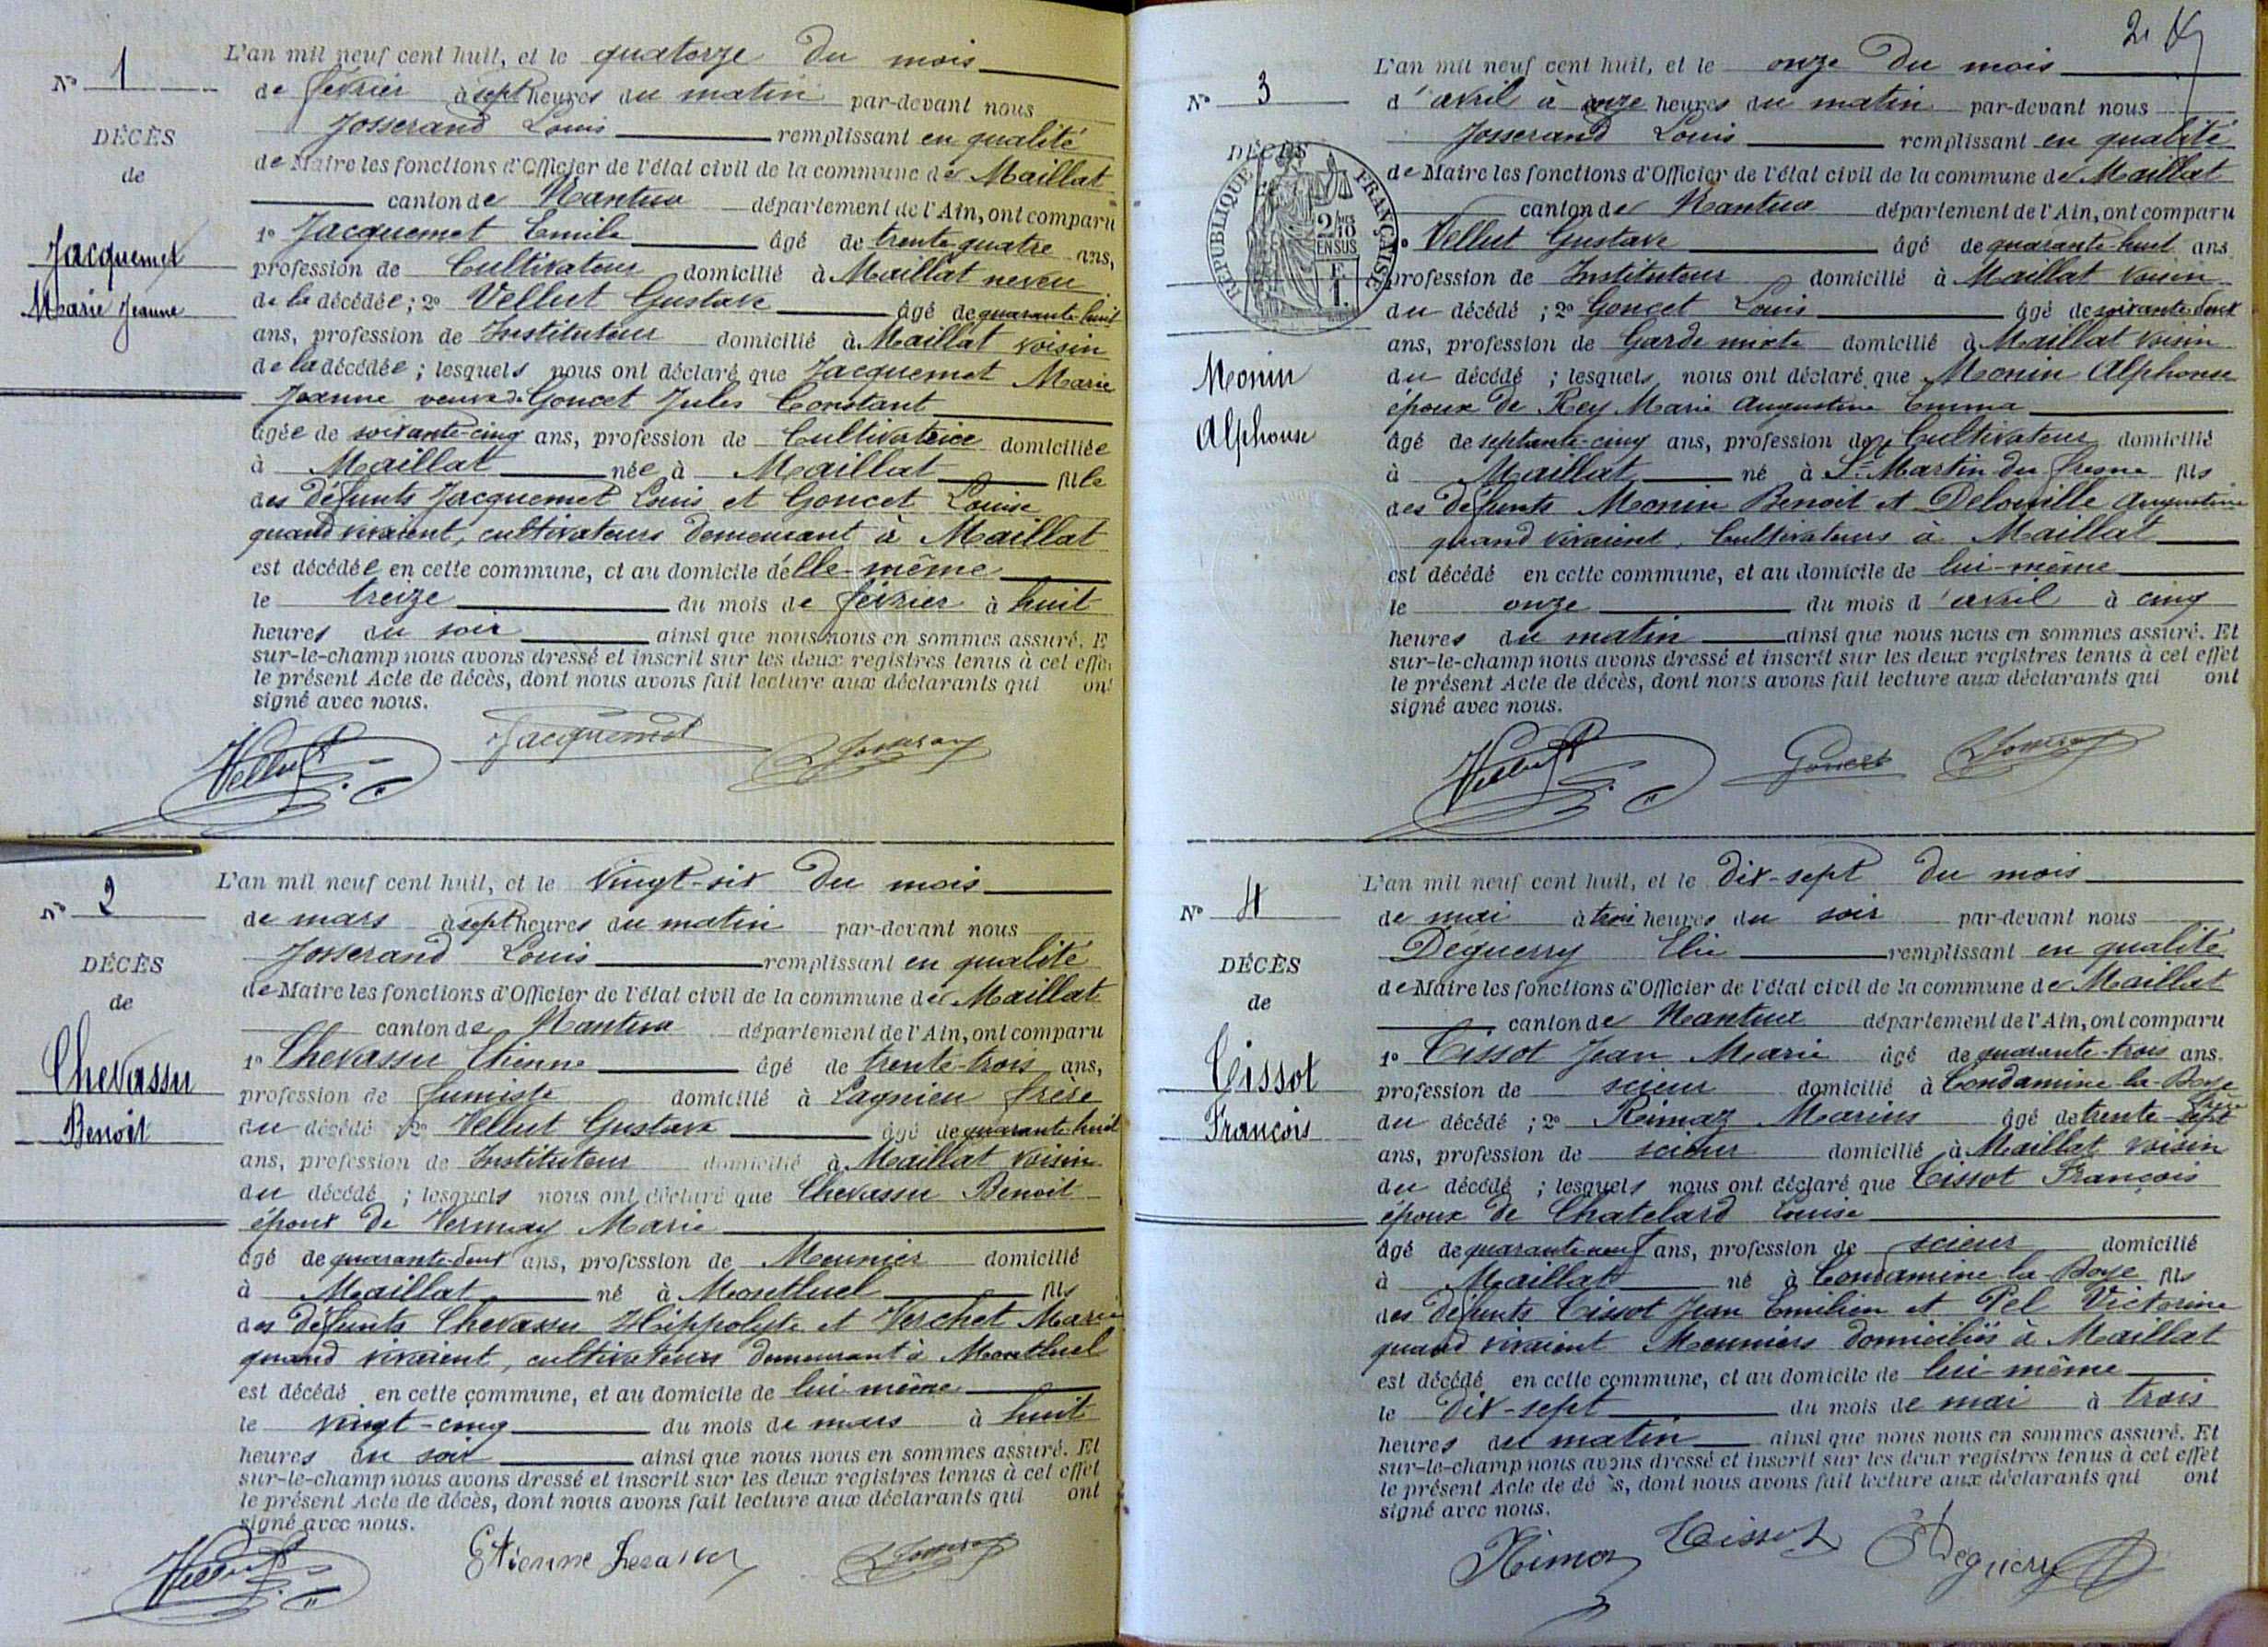 N° 1
DÉCÈS
de
Jacquemet
Marie Jeanne
L'an mil neuf cent huit, et le quatorze du mois
de février à sept heures du matin par-devant nous
Josserand Louis remplissant en qualité
de Maire les fonctions d'Officier de l'état civil de la commune de Maillat
canton de Nantua département de l'Ain, ont comparu
1° Jacquemet Emile âgé de trente quatre ans,
profession de Cultivateur domicilié à Maillat neveu
de la décédée ; 2° Vellut Gustave âgé de quarante-huit
ans, profession de Instituteur domicilié à Maillat voisin
de la décédée ; lesquels nous ont déclaré que Jacquemet Marie
Jeanne veuve de Goncet Jules Constant
âgée de soixante-cinq ans, profession de Cultivatrice domiciliée
à Maillat née à Maillat fille
des défunts Jacquemet Louis et Goncet Louise
quand vivaient, cultivateurs demeurant à Maillat
est décédée en cette commune, et au domicile d'elle-même
le treize du mois de février à huit
heures du soir ainsi que nous nous en sommes assuré. E
sur-le-champ nous avons dressé et inscrit sur les deux registres tenus à cet effet
le présent Acte de décès, dont nous avons fait lecture aux déclarants qui ont
signé avec nous.
Vellut Jacquemet L Josserand
N° 2
DÉCÈS
de
Chevassu
Benoit
L'an mil neuf cent huit, et le vingt-six du mois
de mars à sept heures du matin par-devant nous
Josserand Louis remplissant en qualité
de Maire les fonctions d'Officier de l'état civil de la commune de Maillat
canton de Nantua département de l'Ain, ont comparu
1° Chevassu Etienne âgé de trente-trois ans,
profession de fumiste domicilié à Lagnieu frère
du décédé ; 2° Vellut Gustave âgé de quarante-huit
ans, profession de Instituteur domicilié à Maillat voisin
du décédé ; lesquels nous ont déclaré que Chevassu Benoit
époux de Vermay Marie
âgé de quarante-deux ans, profession de Meunier domicilié
à Maillat né à Montluel fils
des défunts Chevassu Hippolyte et Verchet Marie
quand vivaient, cultivateurs demeurant à Montluel
est décédé en cette commune, et au domicile de lui-même
le vingt-cinq du mois de mars à huit
heures du soir ainsi que nous nous en sommes assuré. Et
sur-le-champ nous avons dressé et inscrit sur les deux registres tenus à cet effet
le présent Acte de décès, dont nous avons fait lecture aux déclarants qui ont
signé avec nous.
Vellut Etienne L Josserand
2
N° 3
DÉCÈS
RÉPUBLIQUE FRANÇAISE
2/10
EN SUS
Monin
Alphonse
L'an mil neuf cent huit, et le onze du mois
d'avril à onze heures du matin par-devant nous
Josserand Louis remplissant en qualité
de Maire les fonctions d'Officier de l'état civil de la commune de Maillat
canton de Nantua département de l'Ain, ont comparu
1° Vellut Gustave âgé de quarante-huit ans
profession de Instituteur domicilié à Maillat voisin
du décédé ; 2° Goncet Louis âgé de soixante-deux
ans, profession de Garde mixte domicilié à Maillat voisin
du décédé ; lesquels nous ont déclaré que Monin Alphonse
époux de Rey Marie Augustine Emma
âgé de septante-cinq ans, profession de Cultivateur domicilié
à Maillat né à St Martin du fresne fils
des défunts Monin Benoit et Deloville Augustine
quand vivaient, Cultivateurs à Maillat
est décédé en cette commune, et au domicile de lui-même
le onze du mois d'avril à cinq
heures du matin ainsi que nous nous en sommes assuré. Et
sur-le-champ nous avons dressé et inscrit sur les deux registres tenus à cet effet
le présent Acte de décès, dont nous avons fait lecture aux déclarants qui ont
signé avec nous.
Vellut Goncet L Josserand
N° 4
DÉCÈS
de
Tissot
François
L'an mil neuf cent huit, et le dix-sept du mois
de mai à trois heures du soir par-devant nous
Déguerry Elie remplissant en qualité
de Maire les fonctions d'Officier de l'état civil de la commune de Maillat
canton de Nantua département de l'Ain, ont comparu
1° Tissot Jean Marie âgé de quarante-trois ans.
profession de scieur domicilié à Condamine-la-Doye frère
du décédé ; 2° Rimaz Marius âgé de trente-sept
ans, profession de scieur domicilié à Maillat voisin
du décédé ; lesquels nous ont déclaré que Tissot François
époux de Chatelard Louise
âgé de quarante neuf ans, profession de scieur domicilié
à Maillat né à Condamine-la-Doye fils
des défunts Tissot Jean Emilien et Pel Victorine
quand vivaient Meuniers domiciliés à Maillat
est décédé en cette commune, et au domicile de lui-même
le dix-sept du mois de mai à trois
heures du matin ainsi que nous nous en sommes assuré. Et
sur-le-champ nous avons dressé et inscrit sur les deux registres tenus à cet effet
le présent Acte de décès, dont nous avons fait lecture aux déclarants qui ont
signé avec nous.
Rimaz Tissot E Deguerry